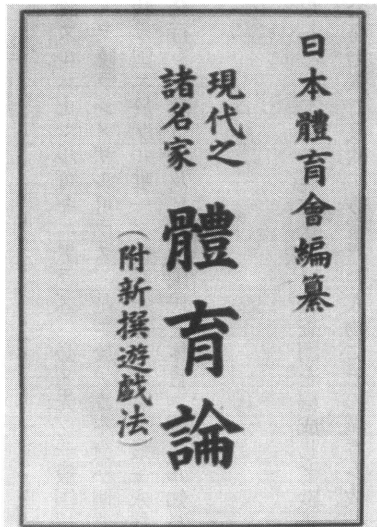 日本體育會編纂
現代之
諸名家
體育論
（附新撰遊戯法）